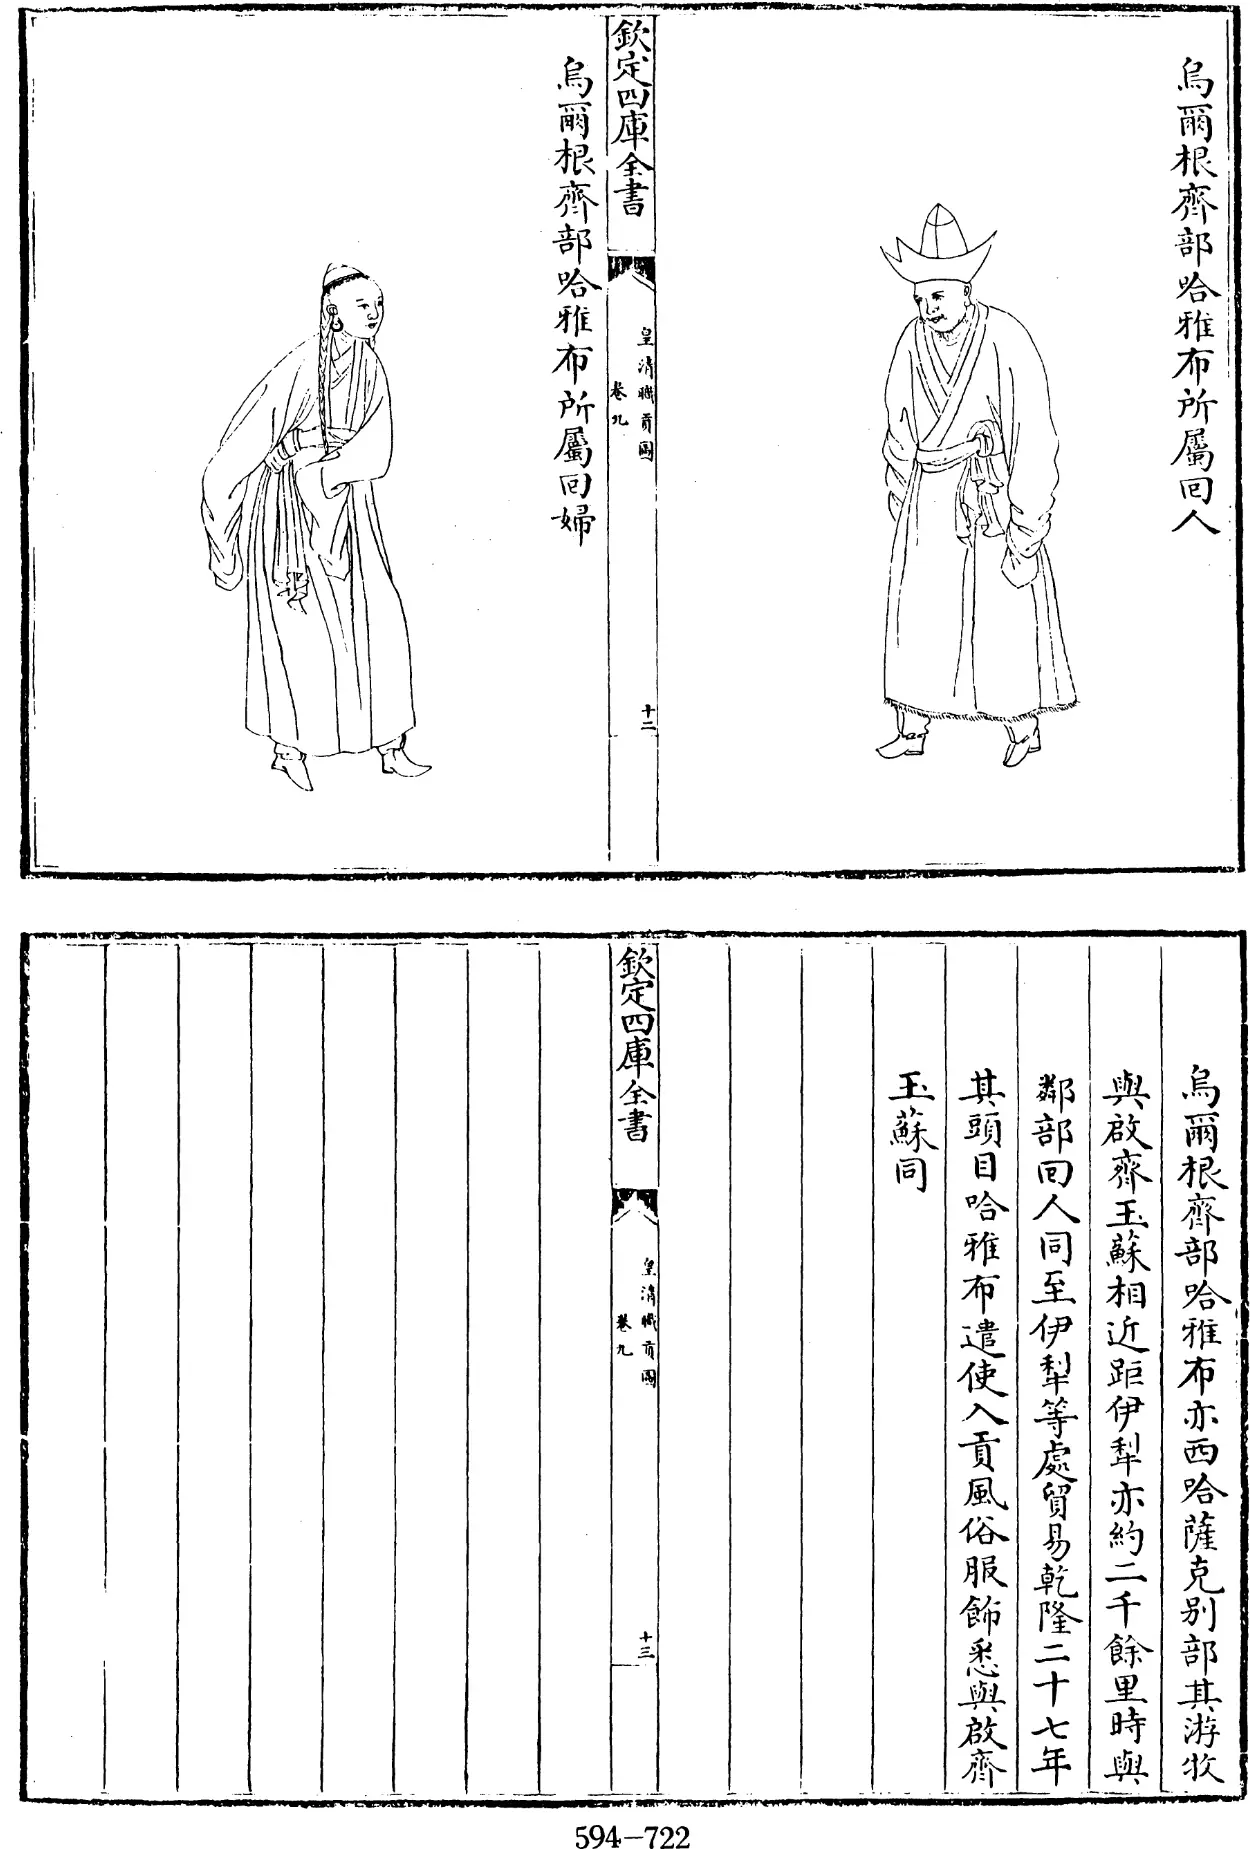 烏爾根齊部哈雅布所屬囘人
欽定四庫全書
皇清職貢圖
卷九
十二
烏爾根齊部哈雅布所屬囘婦
烏爾根齊部哈雅布亦西哈薩克别部其游牧
與啟齊玉蘇相近距伊犂亦約二千餘里時與
鄰部囘人同至伊犂等處貿易乾隆二十七年
其頭目哈雅布遣使入貢風俗服飾悉與啟齊
玉蘇同
欽定四庫全書
皇清職貢圖
卷九
十三
594-722